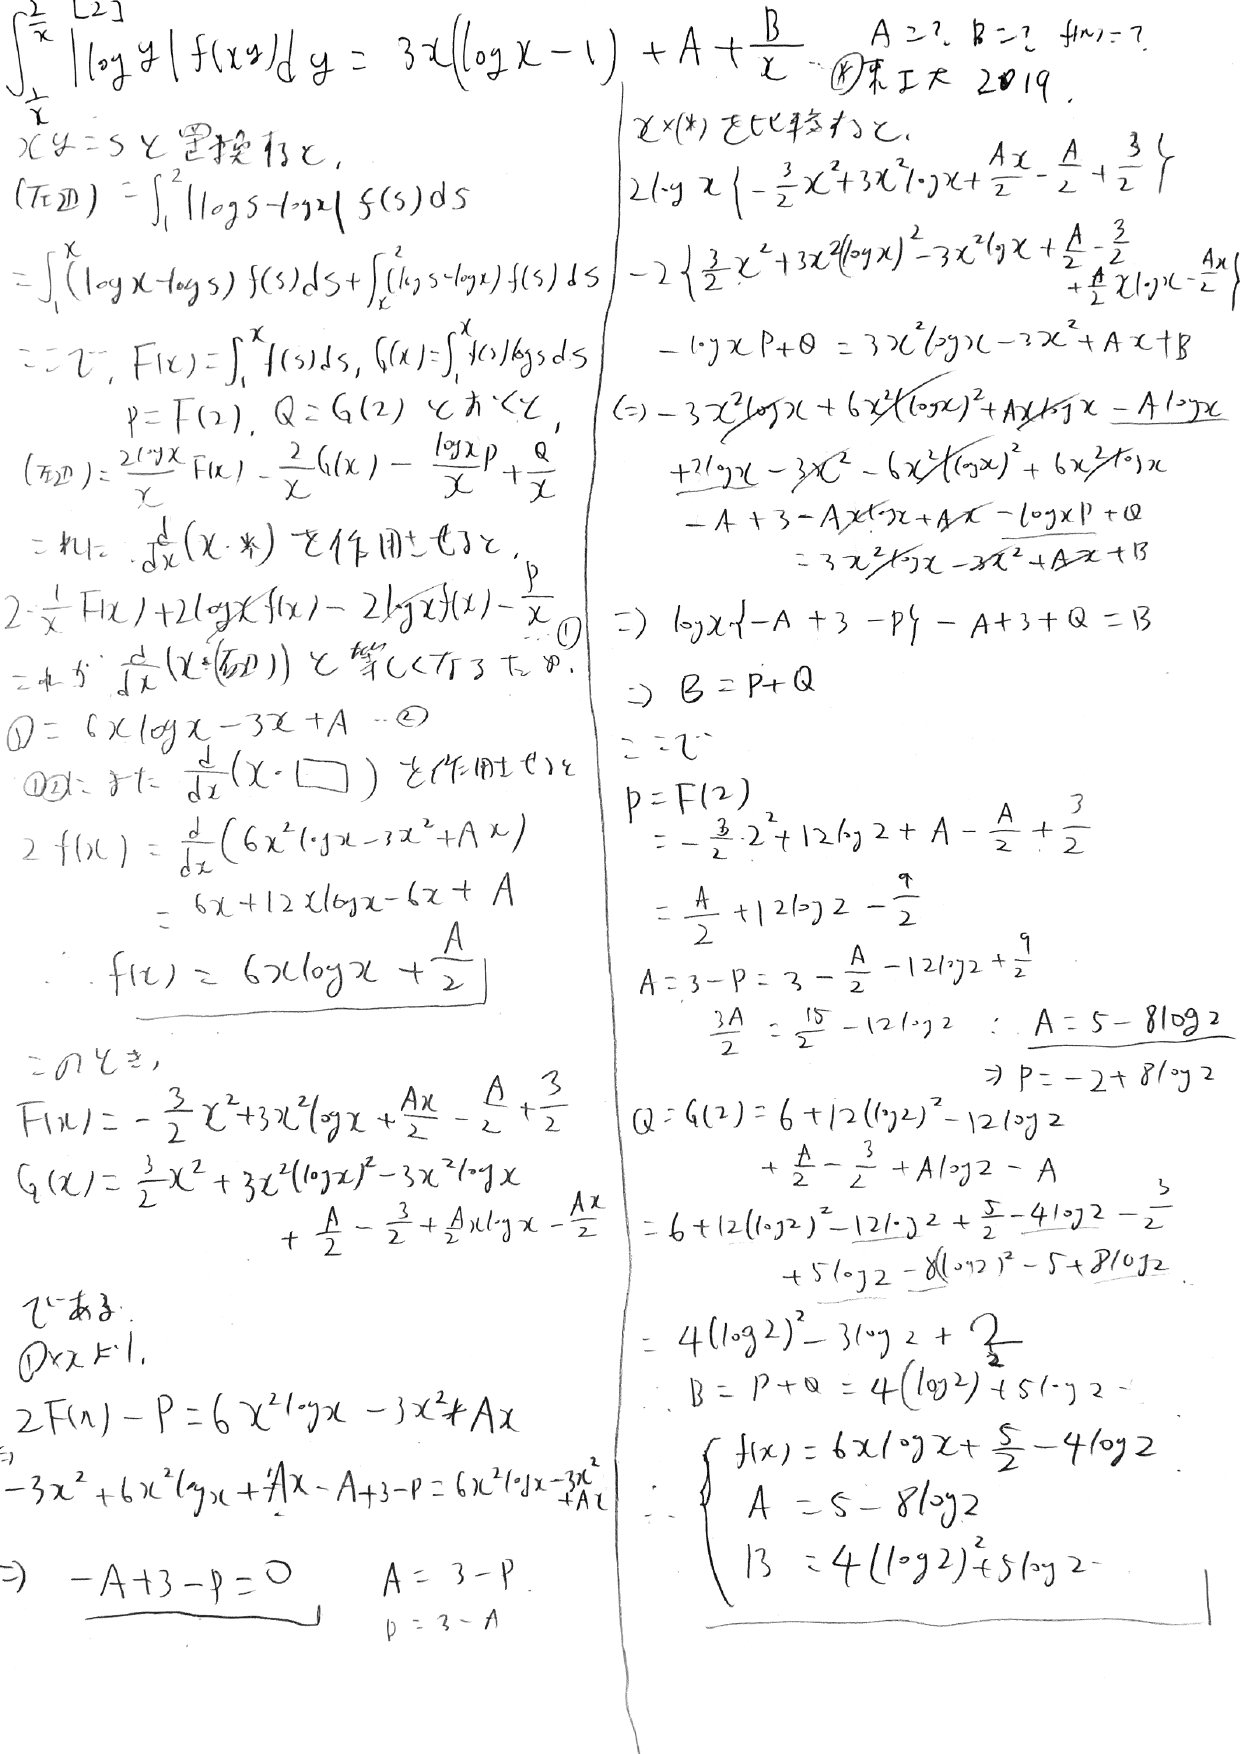 [2]
∫_{1/x}^{2/x} |log y| f(xy)dy = 3x(log x - 1) + A + B/x … (*) A=? B=? f(x)=?
東工大 2019.
xy=s と置換すると,
(左辺) = ∫_1^2 |log s - log x| f(s)ds
= ∫_1^x (log x - log s) f(s)ds + ∫_x^2 (log s - log x) f(s)ds
ここで, F(x) = ∫_1^x f(s)ds, G(x) = ∫_1^x f(s)log s ds
P = F(2), Q = G(2) とおくと,
(左辺) = 2log x/x F(x) - 2/x G(x) - log x/x P + Q/x
これに d/dx (x・*) を作用させると,
2・1/x F(x) + 2log x f(x) - 2log x f(x) - P/x … ①
これが d/dx (x×(右辺)) と等しくなるため.
① = 6x log x - 3x + A … ②
①②にまた d/dx (x・□) を作用させると
2f(x) = d/dx (6x² log x - 3x² + Ax)
= 6x + 12x log x - 6x + A
∴ f(x) = 6x log x + A/2
このとき,
F(x) = -3/2 x² + 3x² log x + Ax/2 - A/2 + 3/2
G(x) = 3/2 x² + 3x² (log x)² - 3x² log x
+ A/2 - 3/2 + A/2 x log x - Ax/2
である.
①×x より.
2F(x) - P = 6x² log x - 3x² + Ax
⇒
-3x² + 6x² log x + Ax - A + 3 - P = 6x² log x - 3x² + Ax
⇒ -A + 3 - P = 0 A = 3 - P.
P = 3 - A
x×(*) を比較すると.
2log x { -3/2 x² + 3x² log x + Ax/2 - A/2 + 3/2 }
-2 { 3/2 x² + 3x² (log x)² - 3x² log x + A/2 - 3/2
+ A/2 x log x - Ax/2 }
- log x P + Q = 3x² log x - 3x² + Ax + B
(⇒) -3x² log x + 6x² (log x)² + Ax log x - A log x
+ 2log x - 3x² - 6x² (log x)² + 6x² log x
- A + 3 - Ax log x + Ax - log x P + Q
= 3x² log x - 3x² + Ax + B
⇒) log x { -A + 3 - P } - A + 3 + Q = B
⇒ B = P + Q
ここで
P = F(2)
= -3/2・2² + 12log 2 + A - A/2 + 3/2
= A/2 + 12log 2 - 9/2
A = 3 - P = 3 - A/2 - 12log 2 + 9/2
3A/2 = 15/2 - 12log 2 ∴ A = 5 - 8log 2
⇒ P = -2 + 8log 2
Q = G(2) = 6 + 12(log 2)² - 12log 2
+ A/2 - 3/2 + A log 2 - A
= 6 + 12(log 2)² - 12log 2 + 5/2 - 4log 2 - 3/2
+ 5log 2 - 8(log 2)² - 5 + 8log 2
= 4(log 2)² - 3log 2 + 2
∴ B = P + Q = 4(log 2)² + 5log 2
∴ { f(x) = 6x log x + 5/2 - 4log 2
A = 5 - 8log 2
B = 4(log 2)² + 5log 2